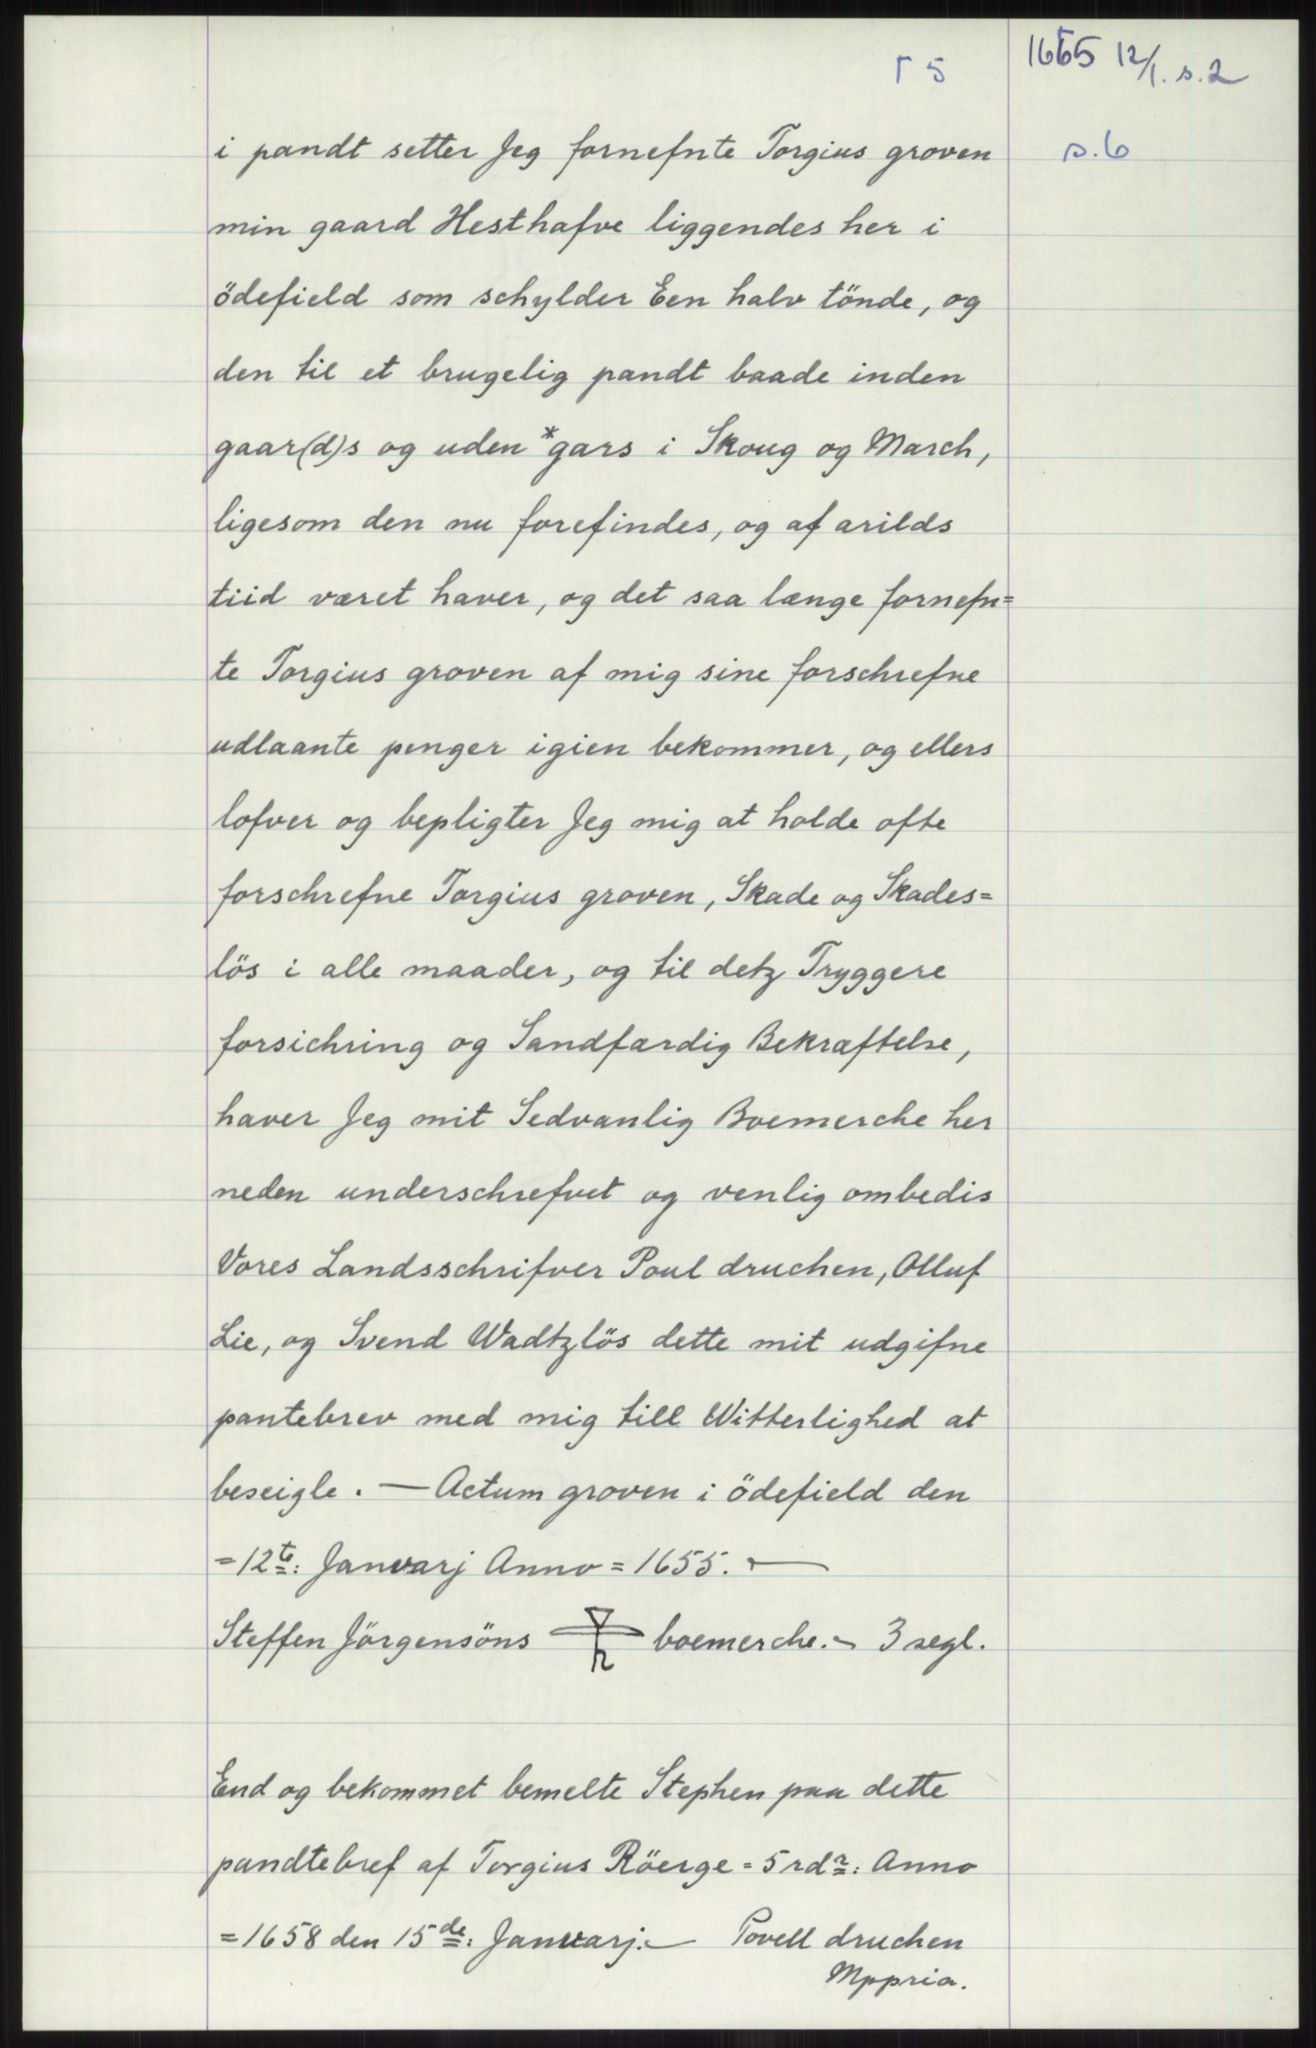 Γ 5
1655 12/1. s. 2
s. 6
i pandt setter Jeg fornefnte Torgius groven
min gaard Hesthafve liggendes her i
ödefield som schylder Een halv tönde, og
den til et brugelig pandt baade inden
gaar(d)s og uden *gars i Skoug og March,
ligesom den nu forefindes, og af arilds
tiid været haver, og det saa længe fornefn=
te Torgius groven af mig sine forschrefne
udlaante penger igien bekommer, og ellers
lofver og bepligter Jeg mig at holde ofte
forschrefne Torgius groven, Skade og Skades=
lös i alle maader, og til detz Tryggere
forsichring og Sandfærdig Bekræftelse,
haver Jeg mit Sedvanlig Boemerche her
neden underschrefvet og venlig ombedis
Vores Landsschrifver Poul druchen, Olluf
Lie, og Svend Wadtzlös dette mit udgifne
pantebrev med mig till Witterlighed at
beseigle. — Actum groven i ödefield den
=12te: Janvarj Anno = 1655. —
Steffen Jörgensöns boemerche. ~ 3 segl.
End og bekommet bemelte Stephen paa dette
pandtebref af Torgius Röerge = 5 rdr: Anno
=1658 den 15de: Janvarj. — Povell druchen
Mppria.